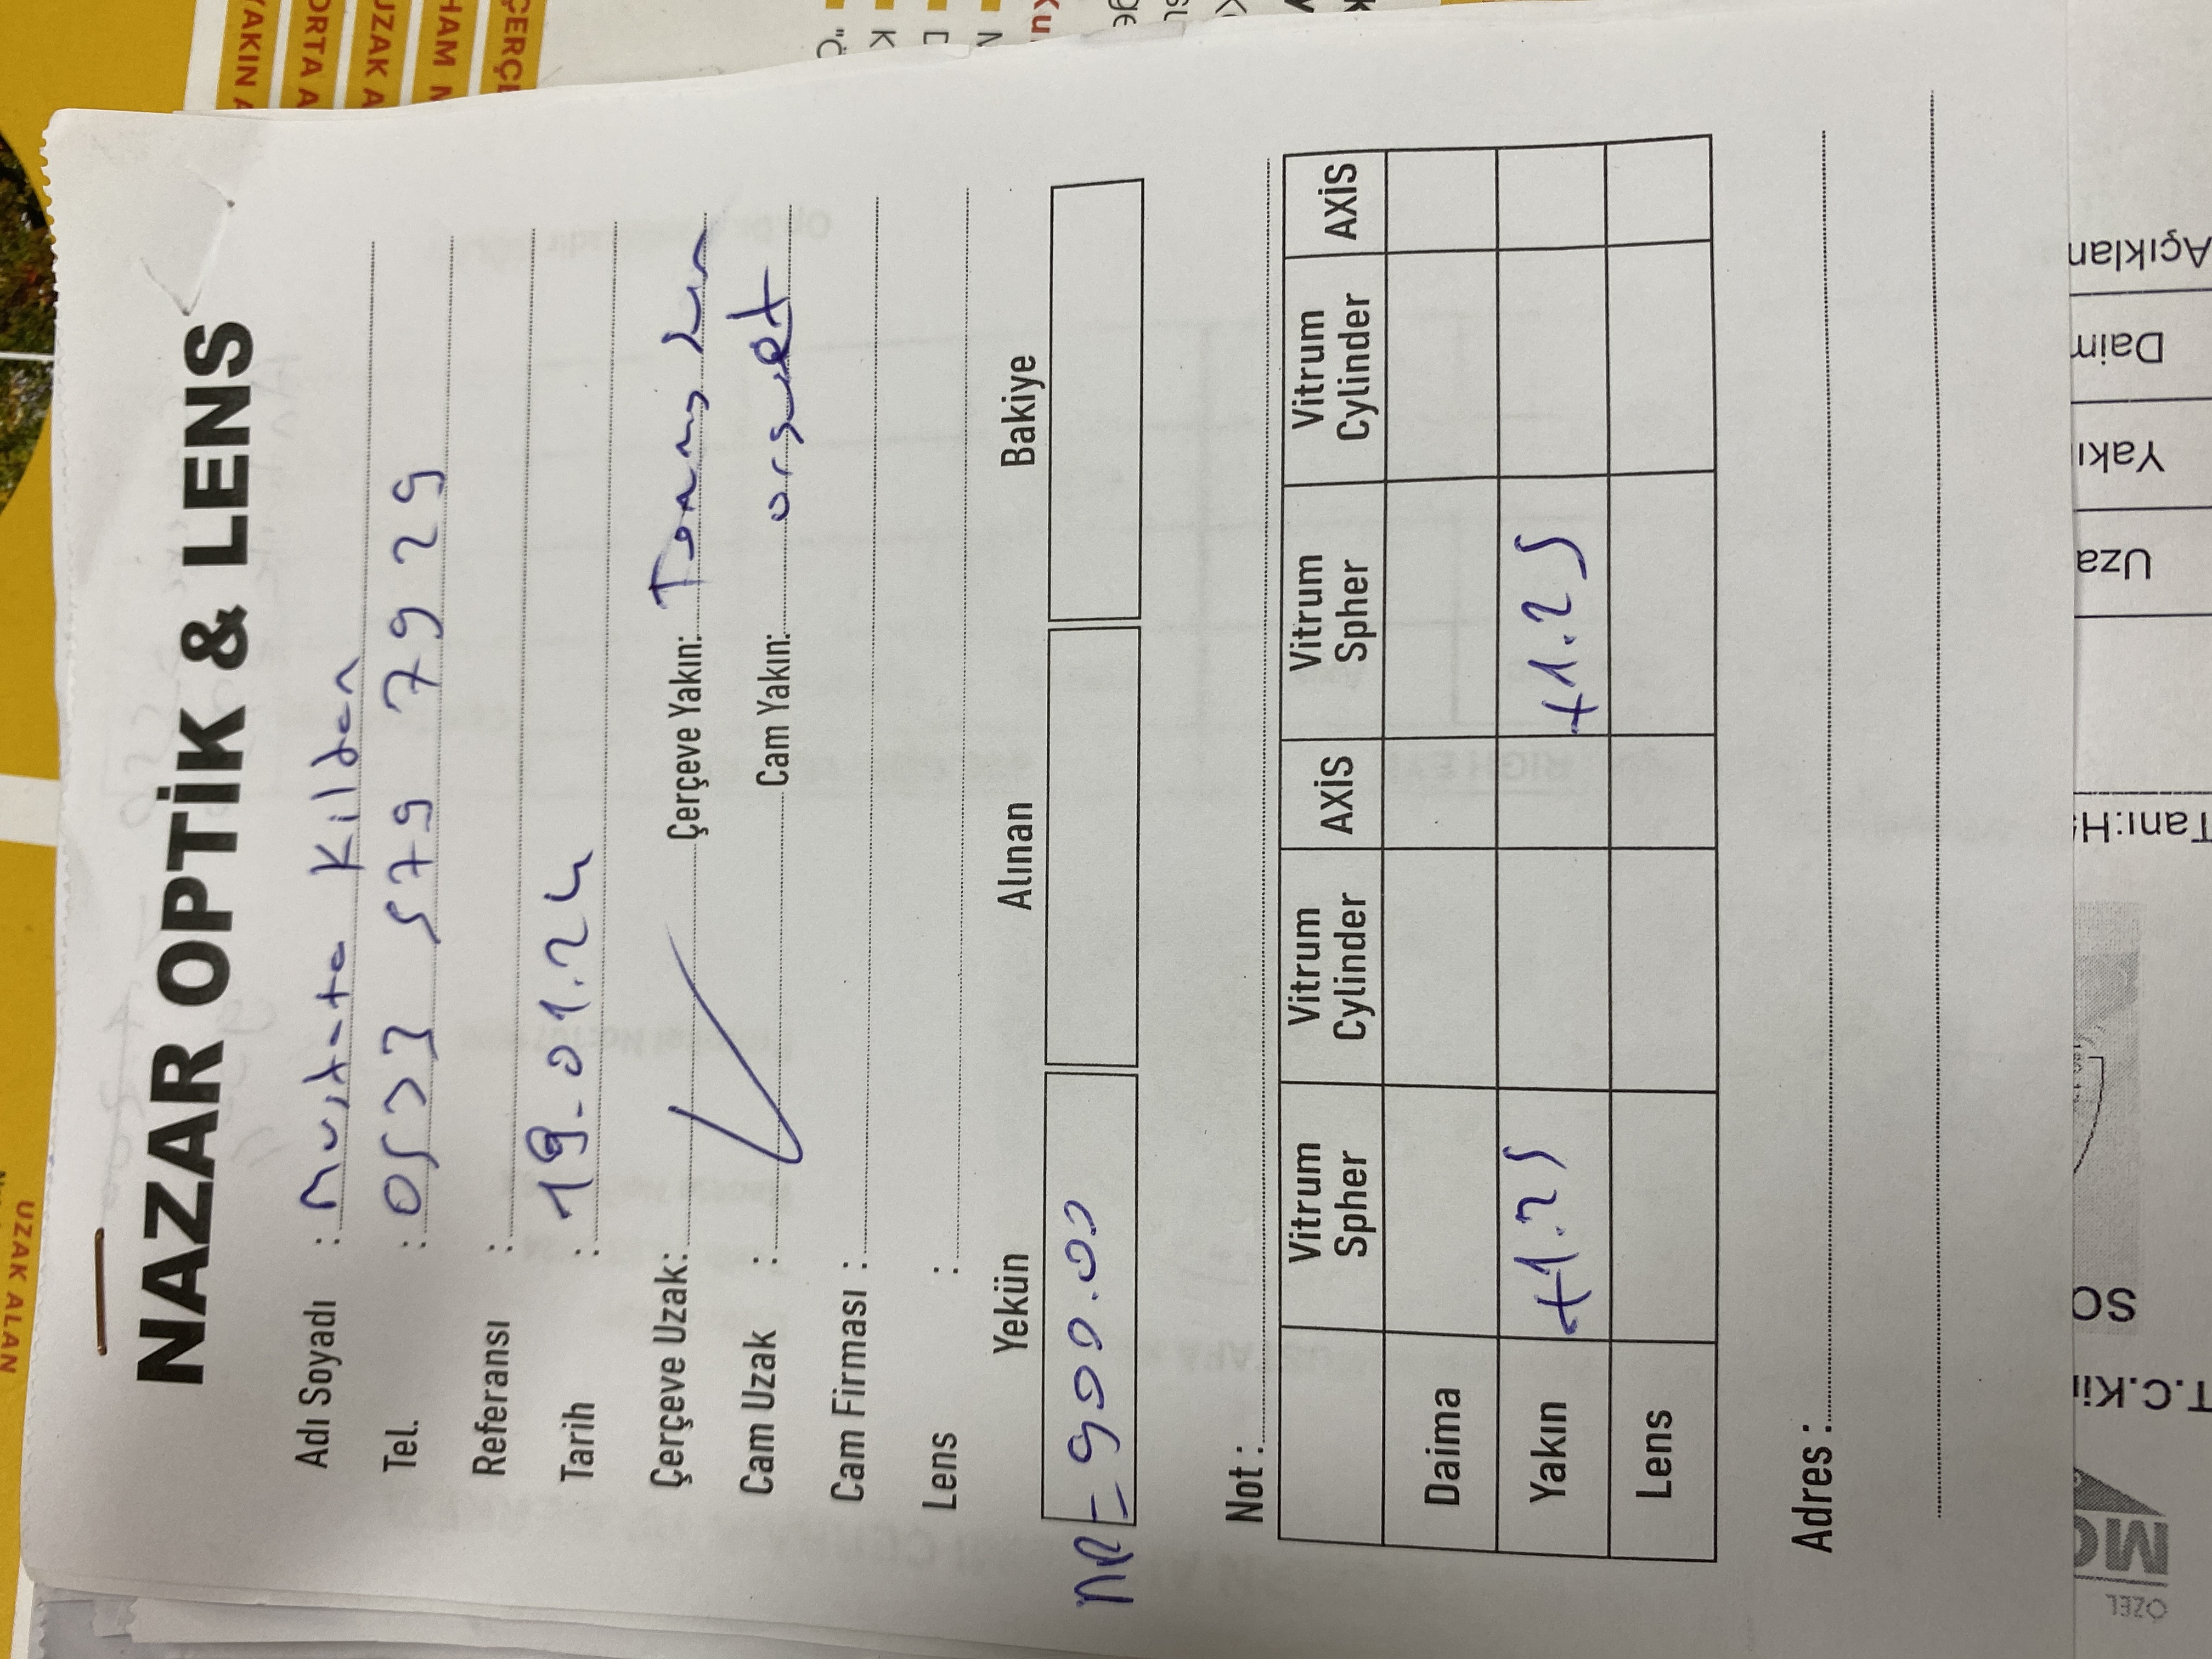 UZAK ALAN
NAZAR OPTİK & LENS
Adı Soyadı : Mustafa Kildan
Tel. : 0533 579 7929
Referansı :
Tarih : 19.01.24
Çerçeve Uzak: Çerçeve Yakın:
Cam Uzak : Cam Yakın:
Cam Firması :
Lens :
Yekün Alınan Bakiye
NR= 900.00
Not :
Vitrum Spher Vitrum Cylinder AXİS Vitrum Spher Vitrum Cylinder AXİS
Daima
Yakın +1.25 +1.25
Lens
Adres :
ÖZEL
T.C.Ki
SO
Tanı:H
Uza
Yakı
Daim
Açıklan